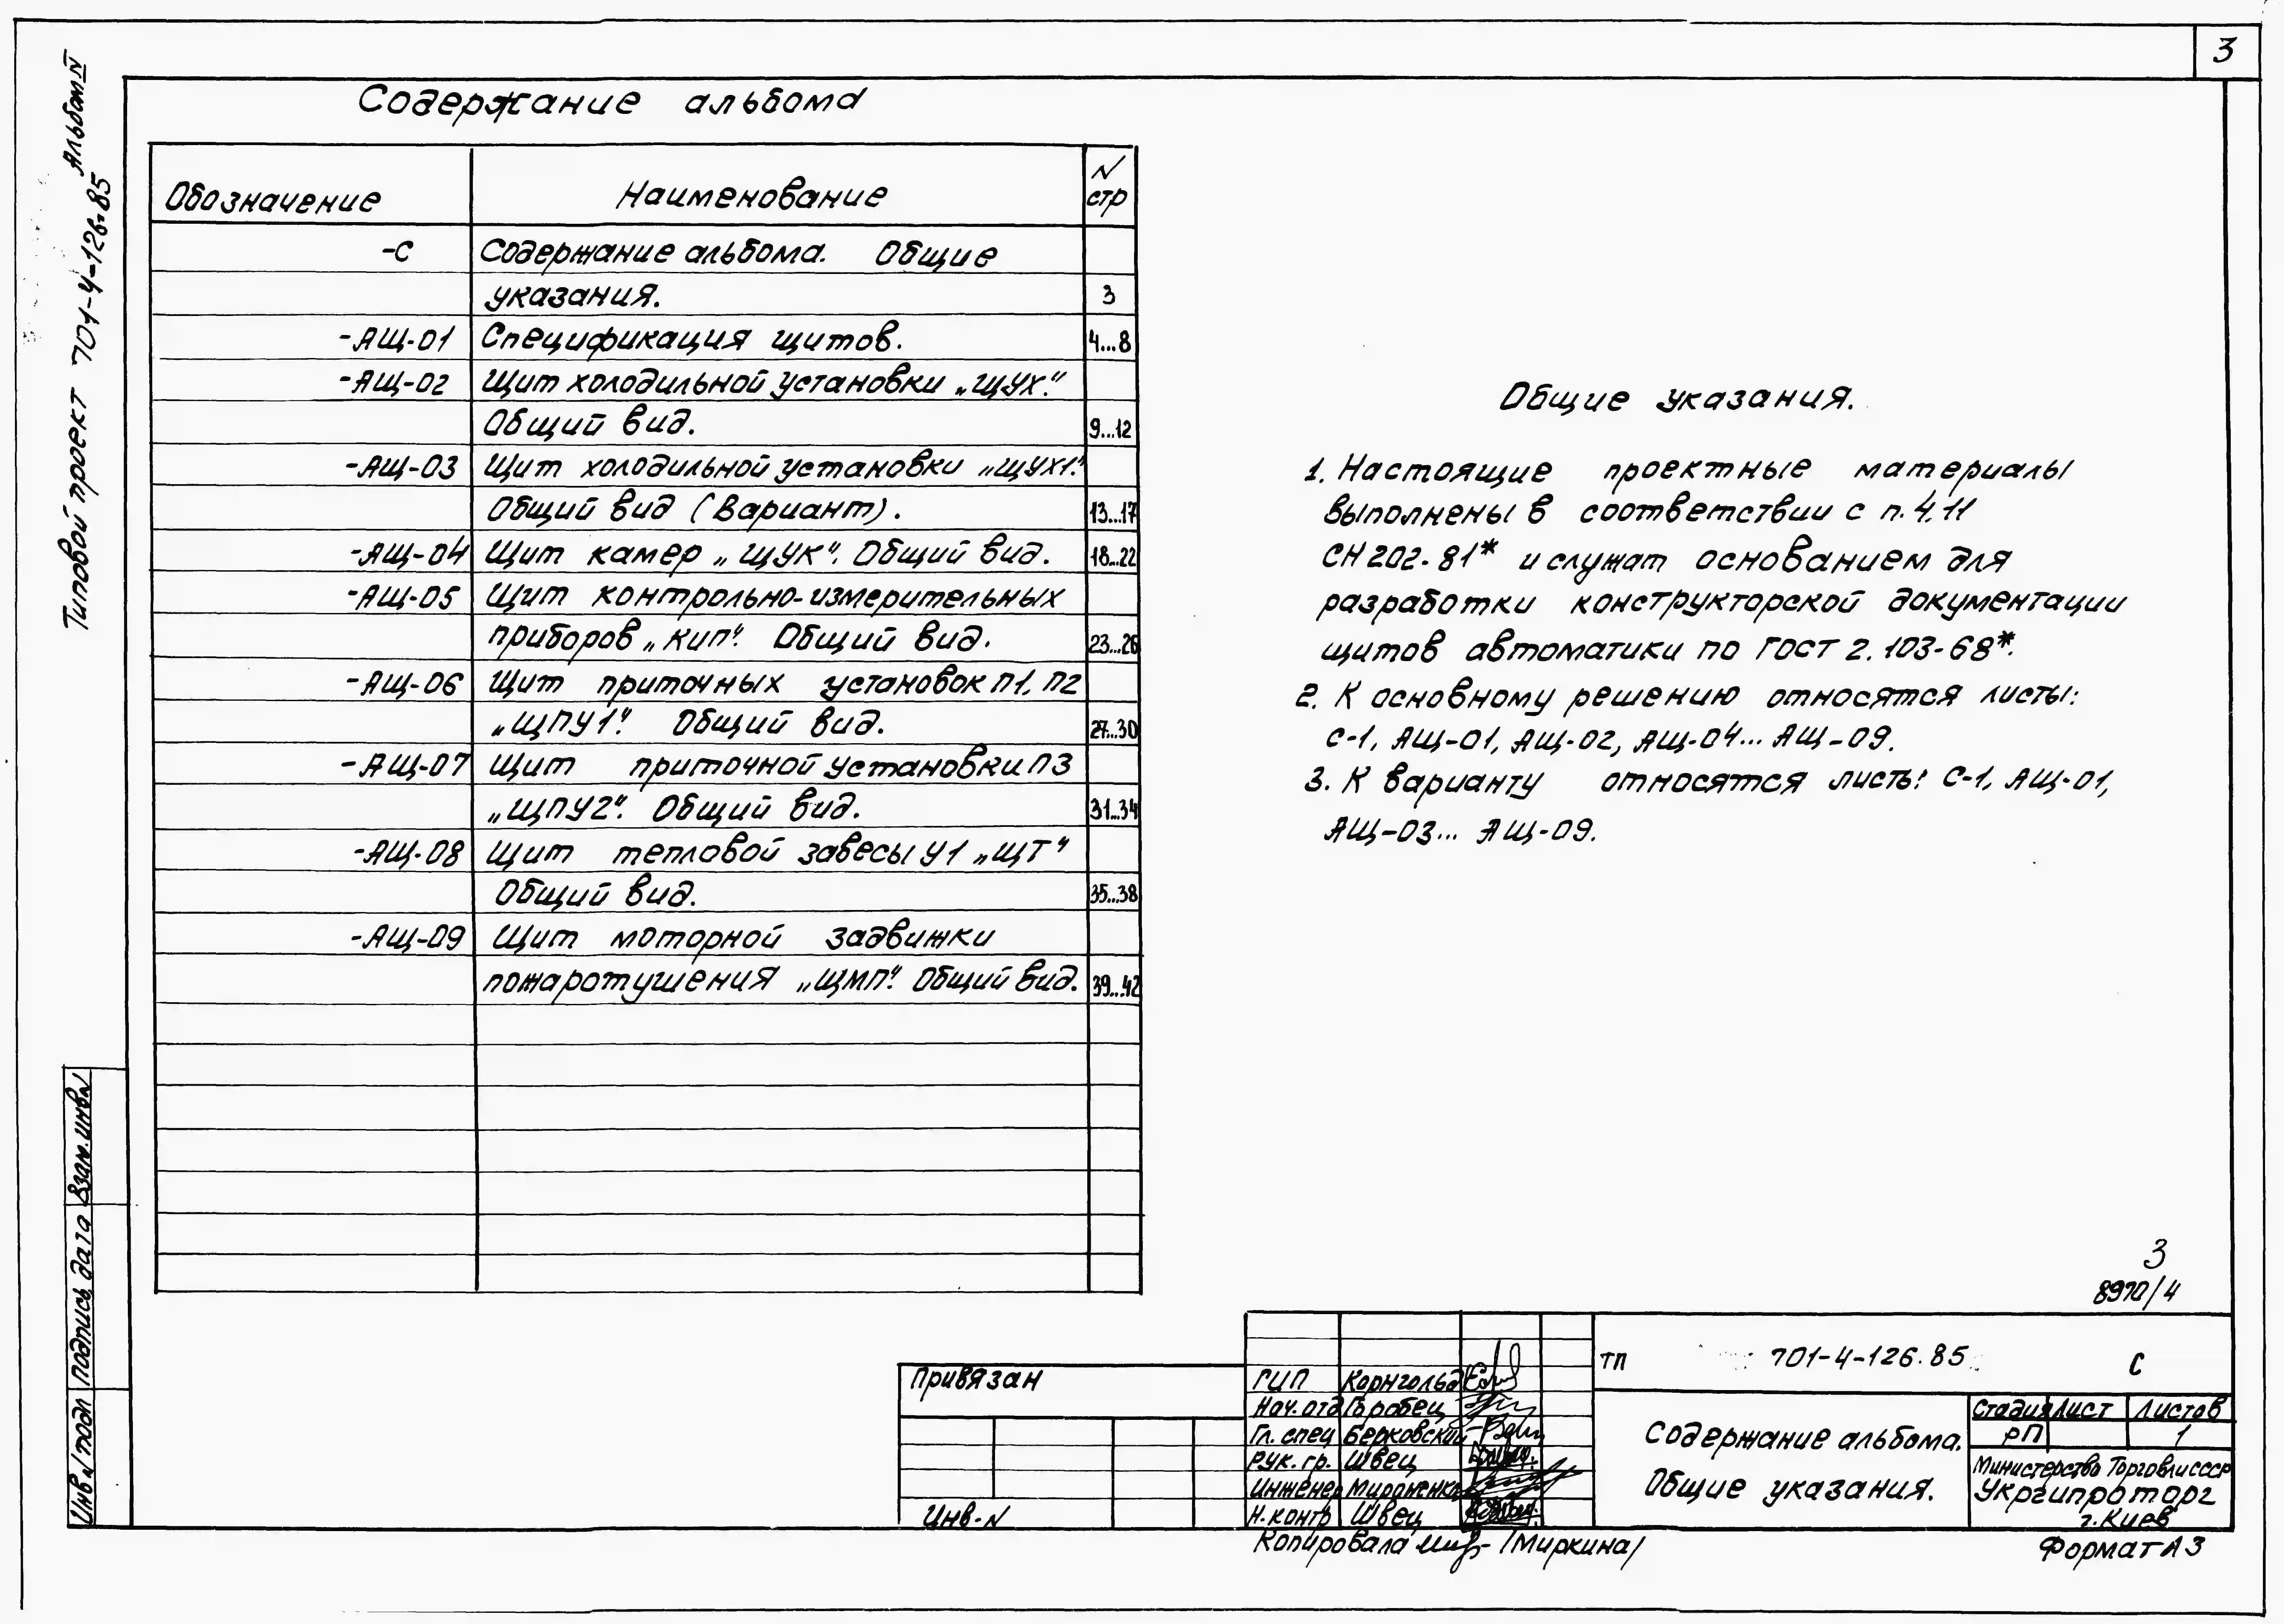 3
Типовой проект 701-4-126.85 Альбом IV
Содержание альбома
Обозначение Наименование N стр
-С Содержание альбома. Общие
указания. 3
-АЩ-01 Спецификация щитов. 4...8
-АЩ-02 Щит холодильной установки „ЩУХ".
Общий вид. 9...12
-АЩ-03 Щит холодильной установки „ЩУХ1".
Общий вид (Вариант). 13...17
-АЩ-04 Щит камер „ЩУК". Общий вид. 18...22
-АЩ-05 Щит контрольно-измерительных
приборов „КИП". Общий вид. 23...26
-АЩ-06 Щит приточных установок П1, П2
„ЩПУ1". Общий вид. 27...30
-АЩ-07 Щит приточной установки П3
„ЩПУ2". Общий вид. 31...34
-АЩ-08 Щит тепловой завесы У1 „ЩТ"
Общий вид. 35...38
-АЩ-09 Щит моторной задвижки
пожаротушения „ЩМП". Общий вид. 39...42
Общие указания.
1. Настоящие проектные материалы
выполнены в соответствии с п. 4.11
СН 202-81* и служат основанием для
разработки конструкторской документации
щитов автоматики по ГОСТ 2.103-68*.
2. К основному решению относятся листы:
С-1, АЩ-01, АЩ-02, АЩ-04... АЩ-09.
3. К варианту относятся листы: С-1, АЩ-01,
АЩ-03... АЩ-09.
3
8970/4
Инв N подл Подпись дата Взам. инв N
Привязан
Инв. N
ГИП Корнгольд
Нач. отд Горобец
Гл. спец Берковский
Рук. гр. Швец
Инженер Мироненко
Н. контр Швец
ТП 701-4-126.85 С
Содержание альбома.
Общие указания.
Стадия Лист Листов
РП 1
Министерство Торговли СССР
Укргипроторг
г. Киев
Копировала /Миркина/
Формат А3